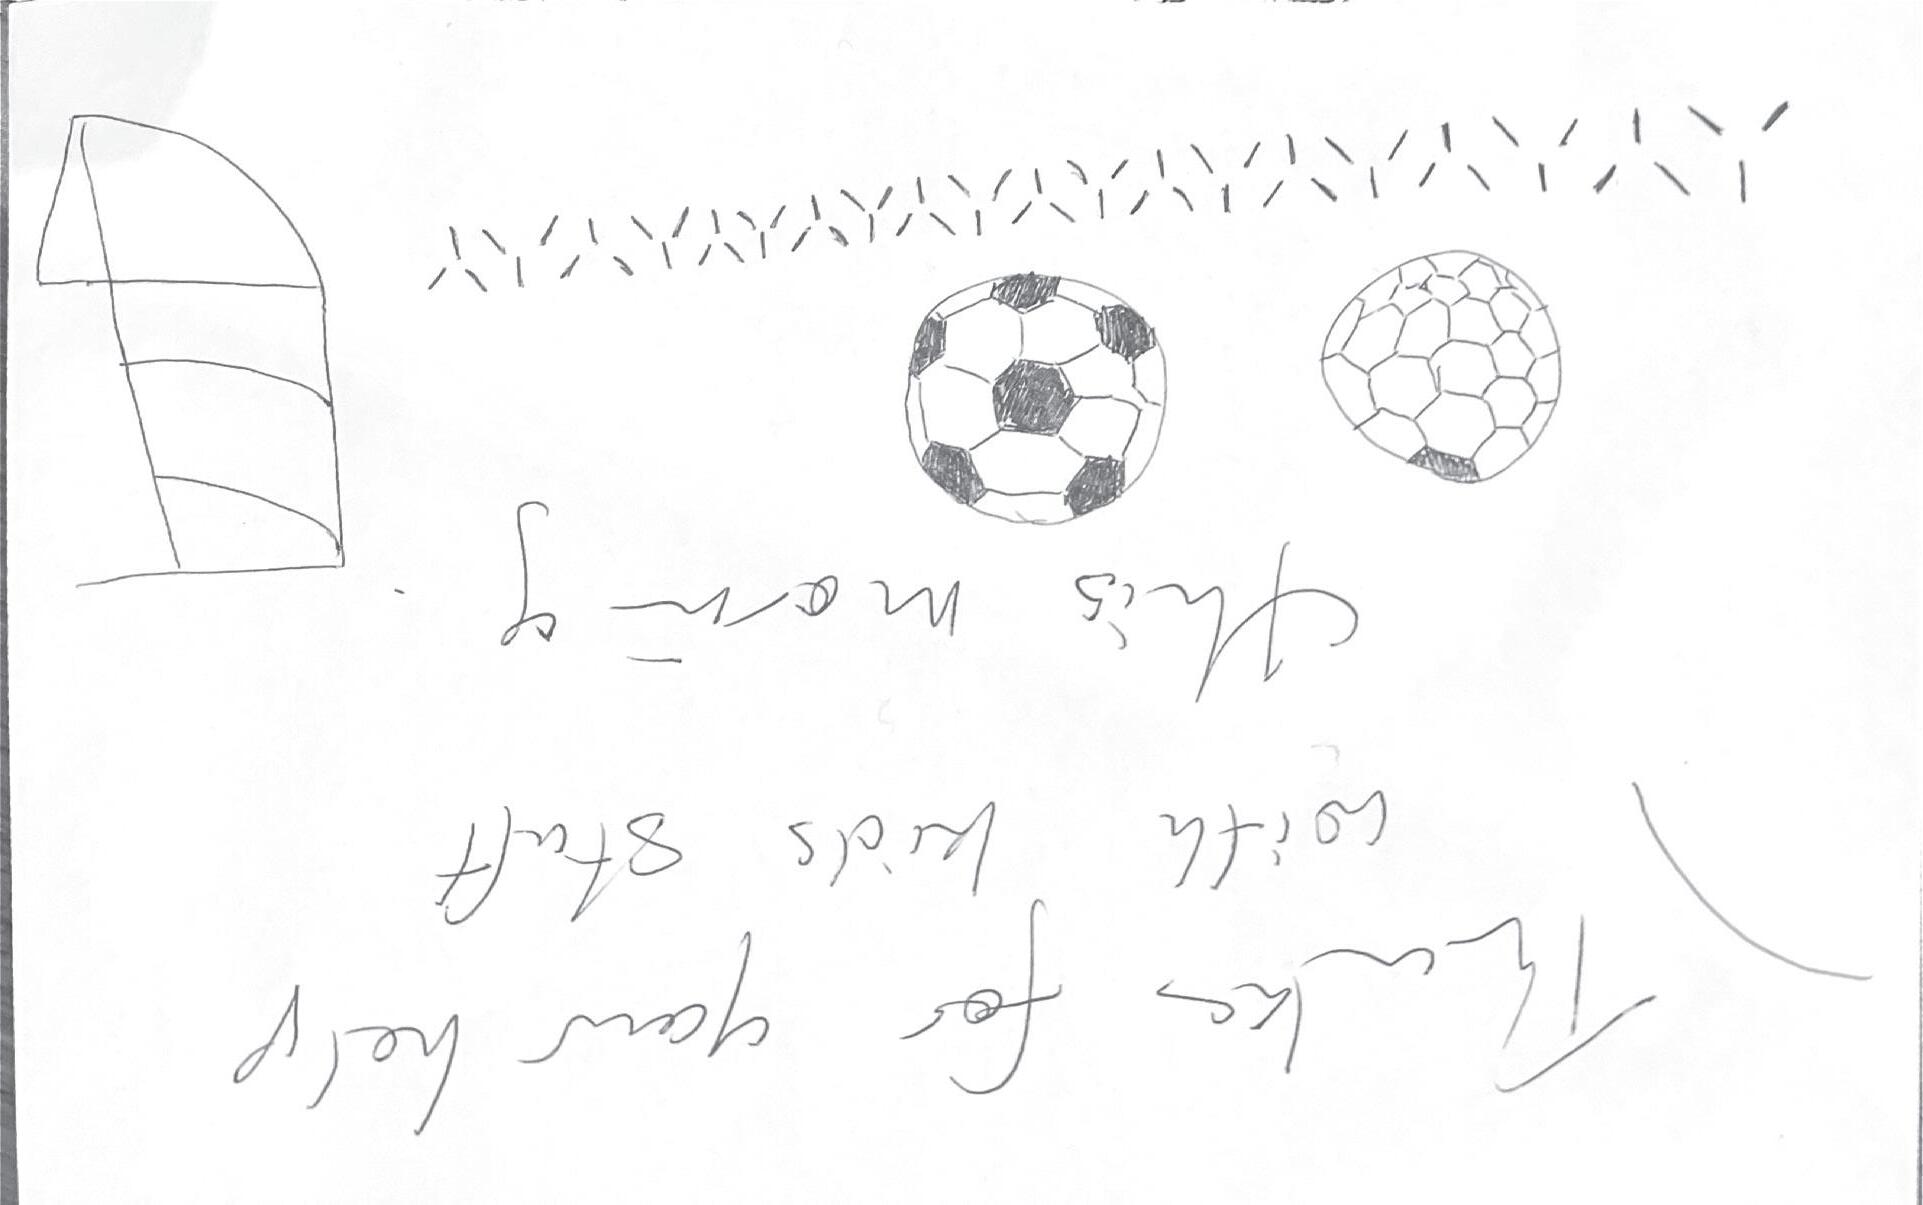 Thanks for your help
with kids stuff
this morning